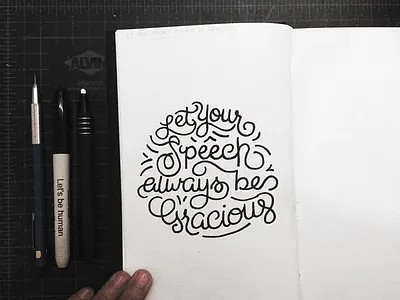 ALVIN
Let's be human
Let Your
Speech
always be
Gracious